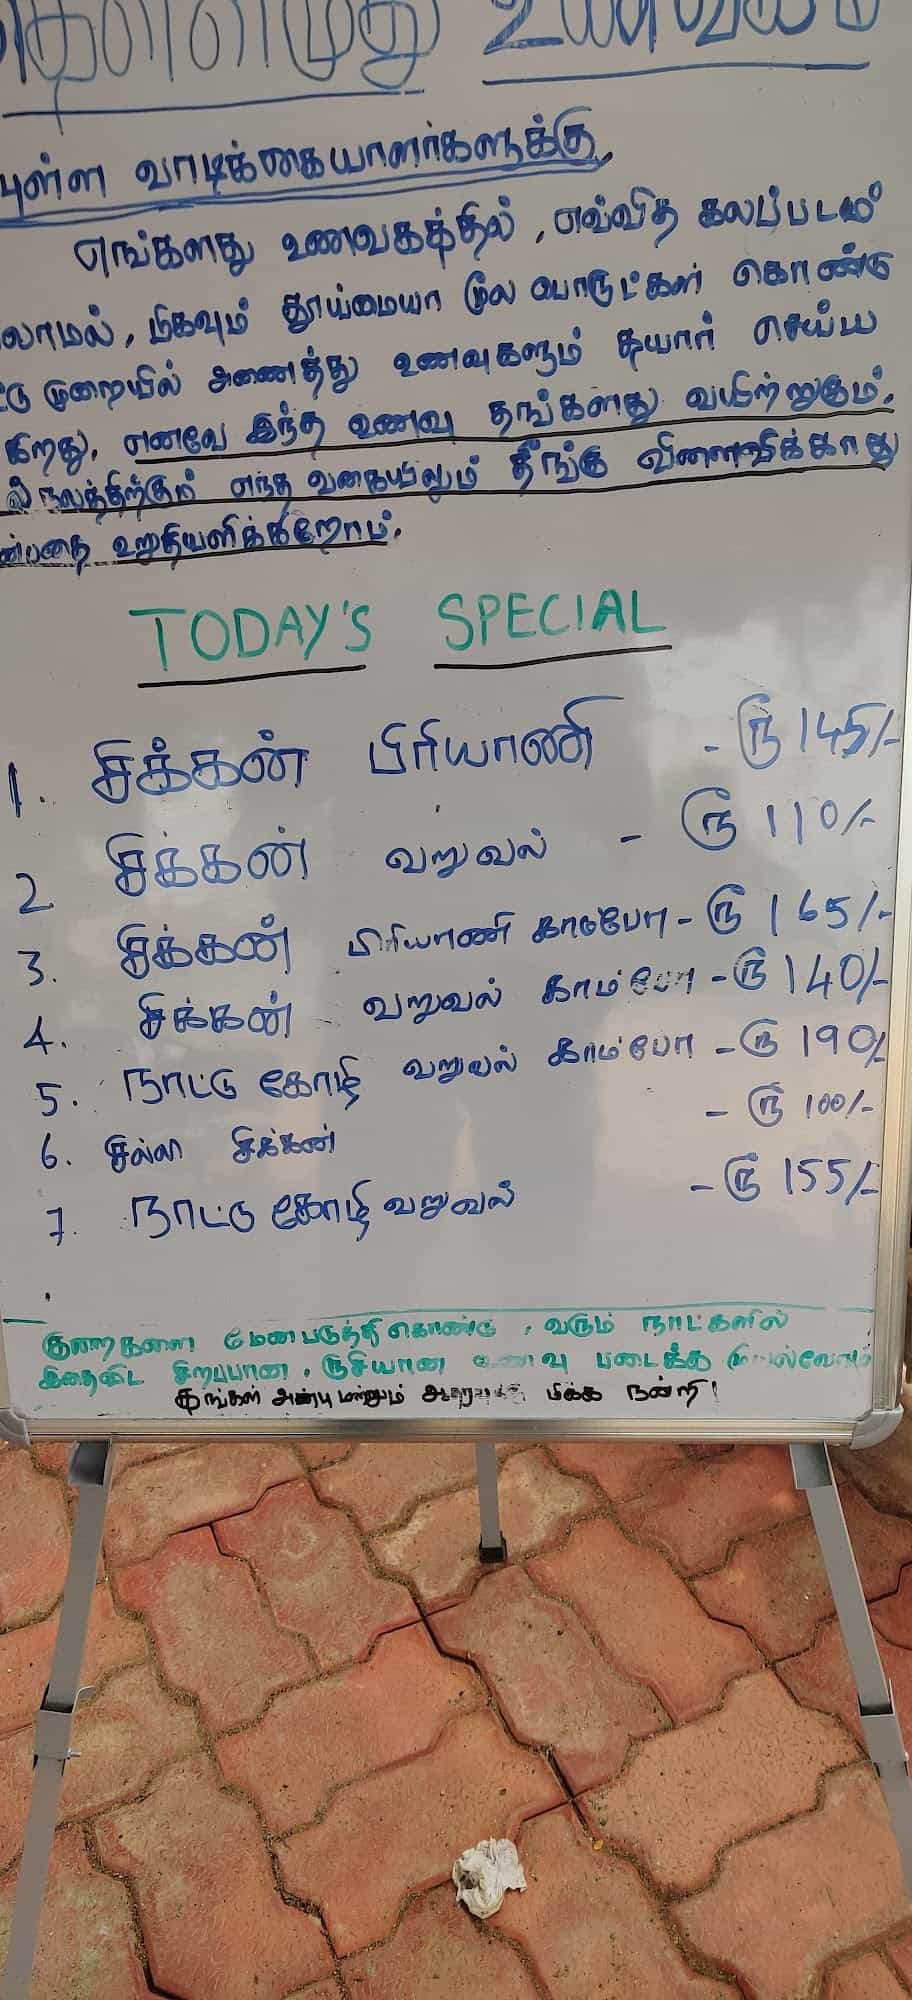 உணவகம்
வாடிக்கையாளர்களுக்கு,
எங்களது உணவகத்தில், எவ்வித கலப்படம்
லாமல், மிகவும் தூய்மையா மூல பொருட்கள் கொண்டு
முறையில் அனைத்து உணவுகளும் தயார் செய்ய
கிறது. எனவே இந்த உணவு தங்களது வயிற்றுகும்.
நலத்திற்கும் எந்த வகையிலும் தீங்கு விளைவிக்காது
என்பதை உறுதியளிக்கிறோம்.
TODAY'S SPECIAL
1. சிக்கன் பிரியாணி - ரூ 145/-
2 சிக்கன் வறுவல் - ரூ 110/-
3. சிக்கன் பிரியாணி காம்போ - ரூ 165/-
4. சிக்கன் வறுவல் காம்போ - ரூ 140/-
5. நாட்டு கோழி வறுவல் காம்போ - ரூ 190/-
6. சில்லி சிக்கன் - ரூ 100/-
7. நாட்டு கோழி வறுவல் - ரூ 155/-
குறைகளை மேன்படுத்தி கொண்டு, வரும் நாட்களில்
இதைவிட சிறப்பான, ருசியான உணவு படைக்க முயல்வோம்
தங்கள் அன்பு மற்றும் ஆதரவுக்கு மிக்க நன்றி!